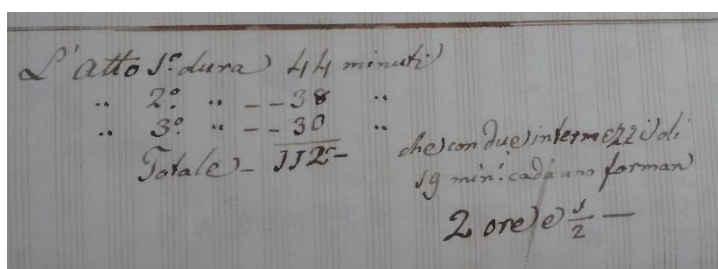 L'atto 1º dura 44 minuti
" 2º " - - 38 "
" 3º " - - 30 "
Totale - 112 -
che con due intermezzi di
19 min: cadauno forman
2 ore e 1/2 —